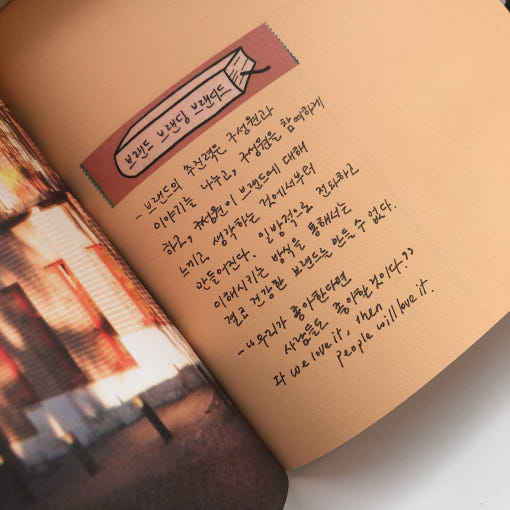 브랜드 브랜딩 브랜디드
- 브랜드의 추진력은 구성원과
이야기를 나누고, 구성원을 참여하게
하고, 구성원이 브랜드에 대해
느끼고, 생각하는 것에서부터
만들어진다. 일방적으로 전화하고
이해시키는 방식을 통해서는
결코 건강한 브랜드를 만들 수 없다.
- "우리가 좋아한다면
사람들도 좋아할 것이다."
if we love it, then
people will love it.